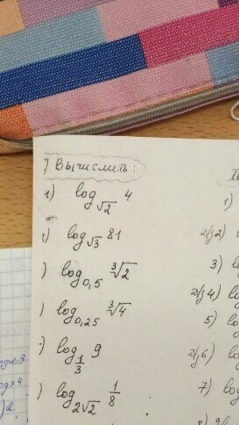 1) Вычислить:
1) log_√2 4
2) log_√3 81
) log_0,5 ∛2
) log_0,25 ∛4
) log_1/3 9
) log_2√2 1/8
1)
2) l
3) lo
4) log
5) log
6) log
7) log